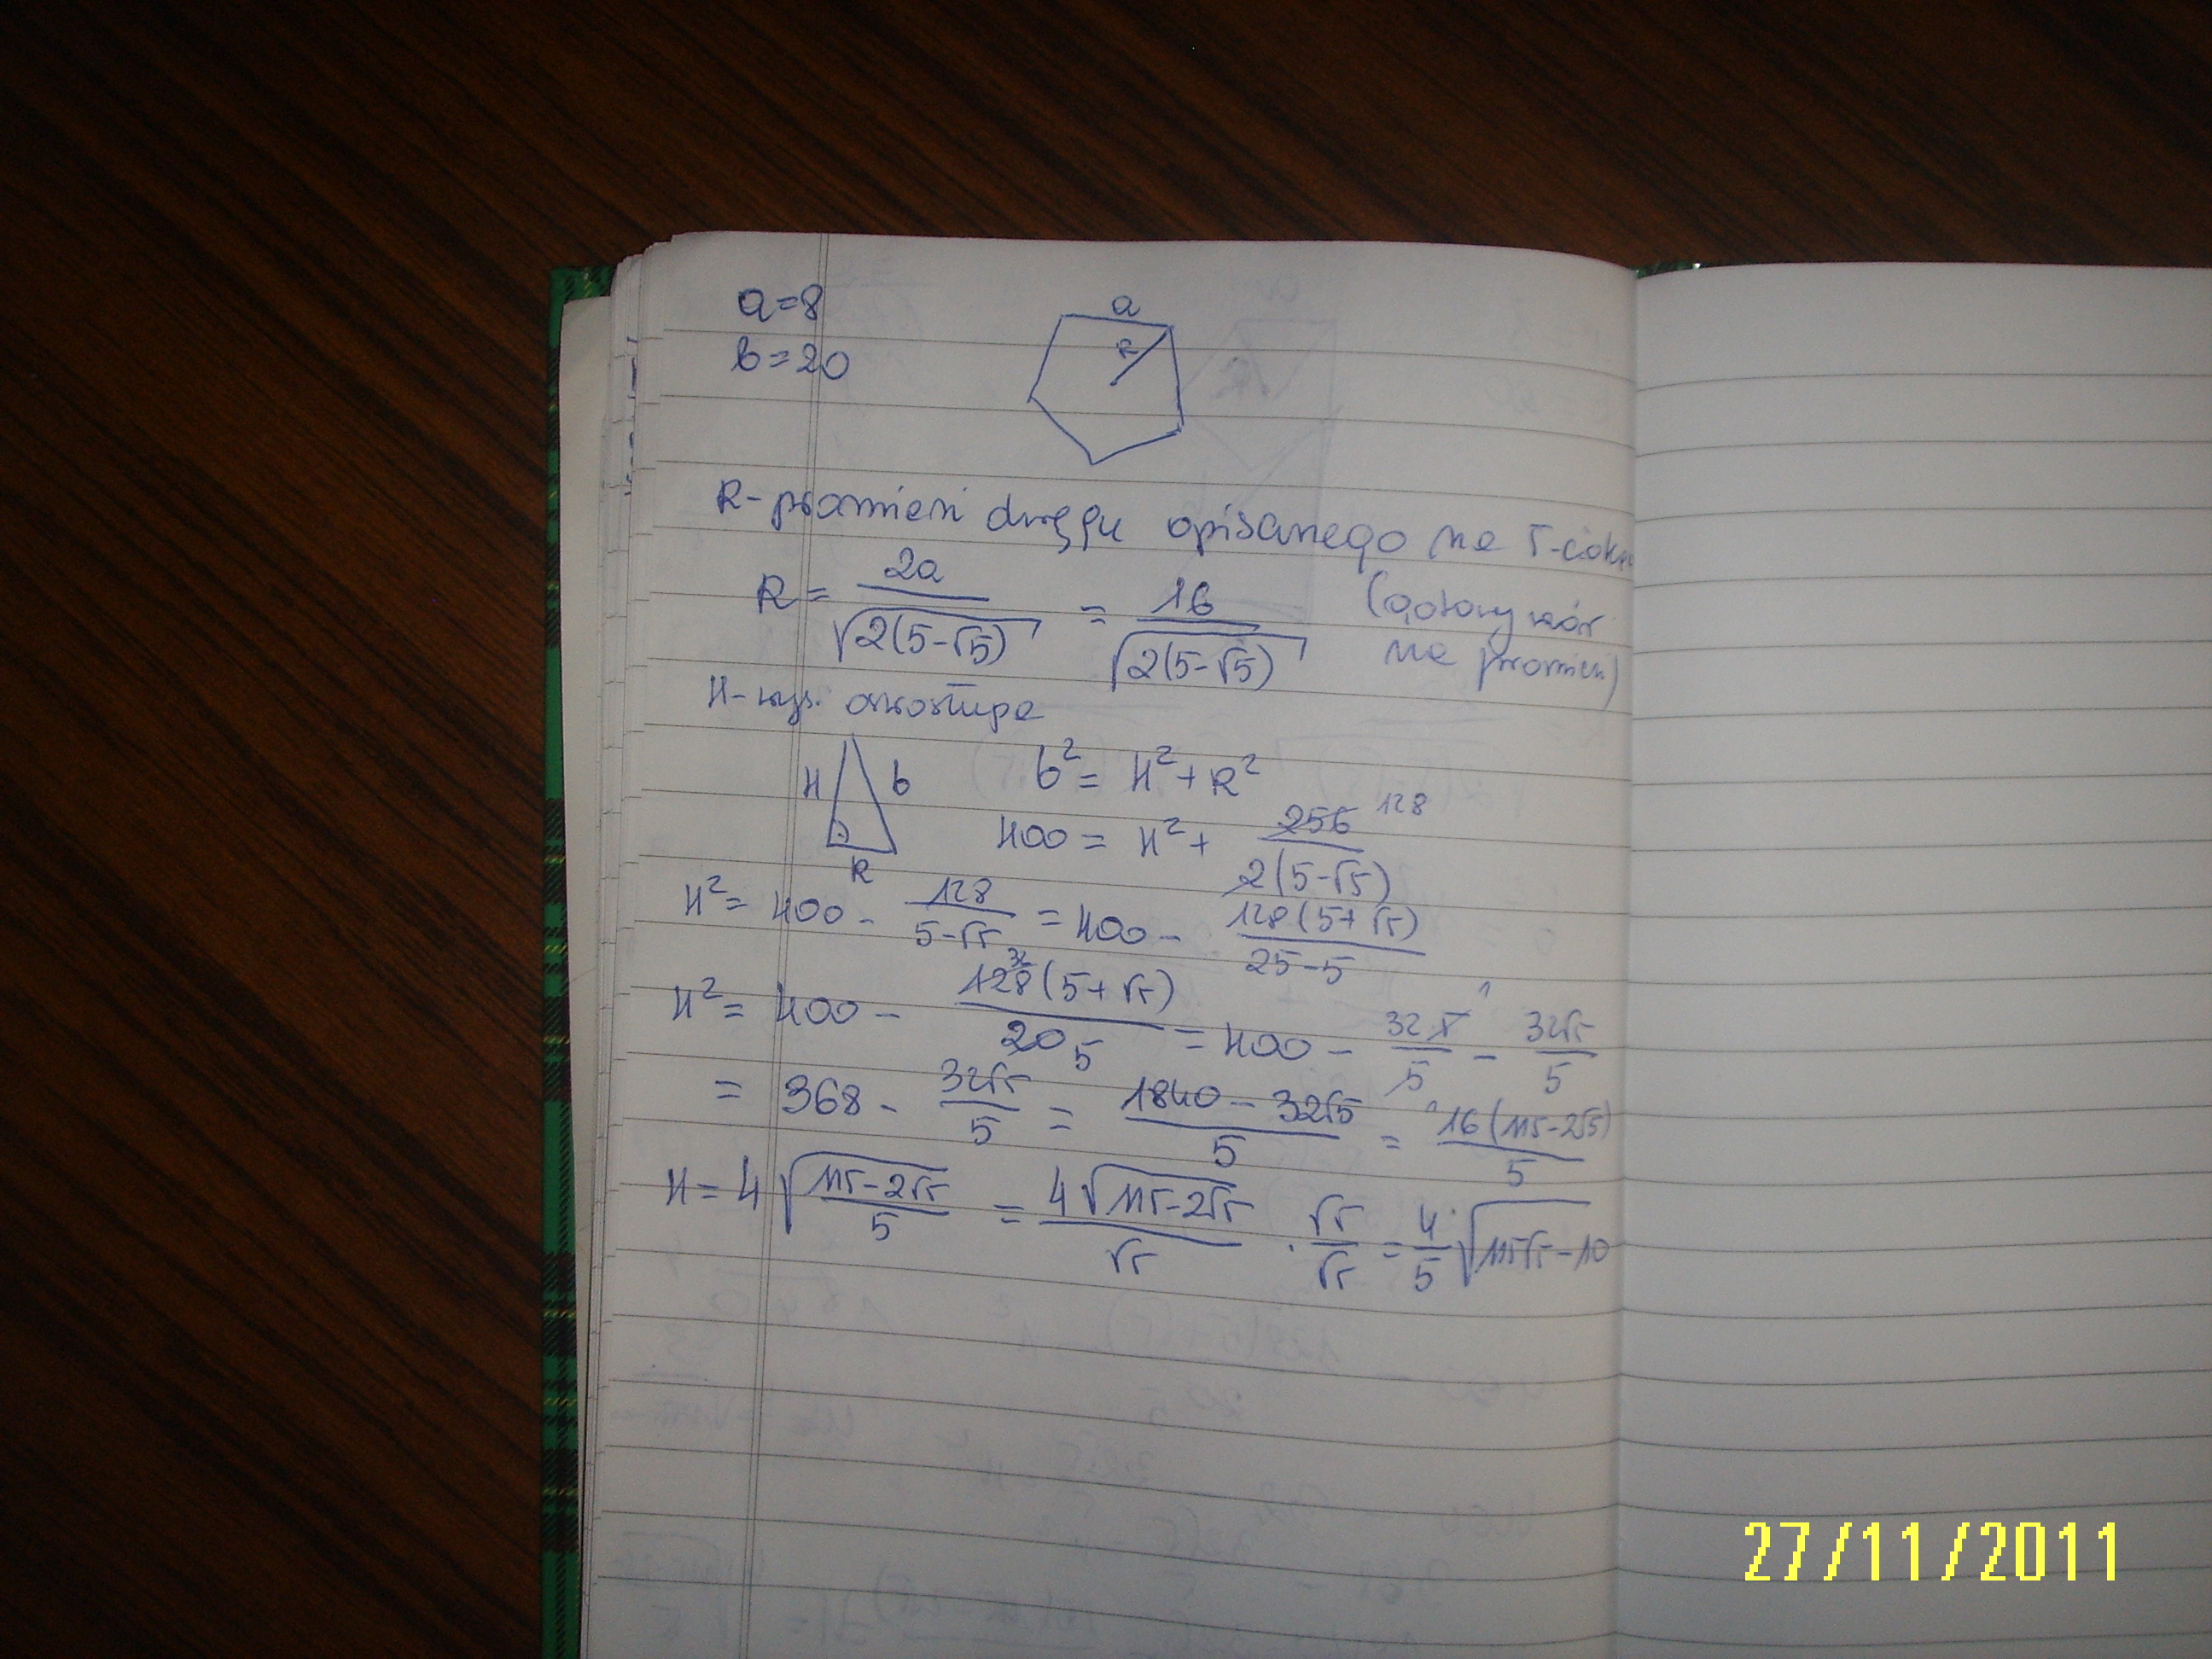 a=8
b=20
a
R
R- promień okręgu opisanego na 5-cioką
R = 2a / √(2(5-√5)) = 16 / √(2(5-√5)) (gotowy wzór
na promień)
H- wys. ostrosłupa
H b R
b² = H² + R²
400 = H² + 256 / 2(5-√5) 128
H² = 400 - 128 / 5-√5 = 400 - 128(5+√5) / 25-5
H² = 400 - 128(5+√5) / 20 32 5 = 400 - 32·5 / 5 1 - 32√5 / 5
= 368 - 32√5 / 5 = 1840 - 32√5 / 5 = 16(115-2√5) / 5
H = 4 √(115-2√5 / 5) = 4√(115-2√5) / √5 · √5 / √5 = 4/5 √(115√5-10)
27/11/2011